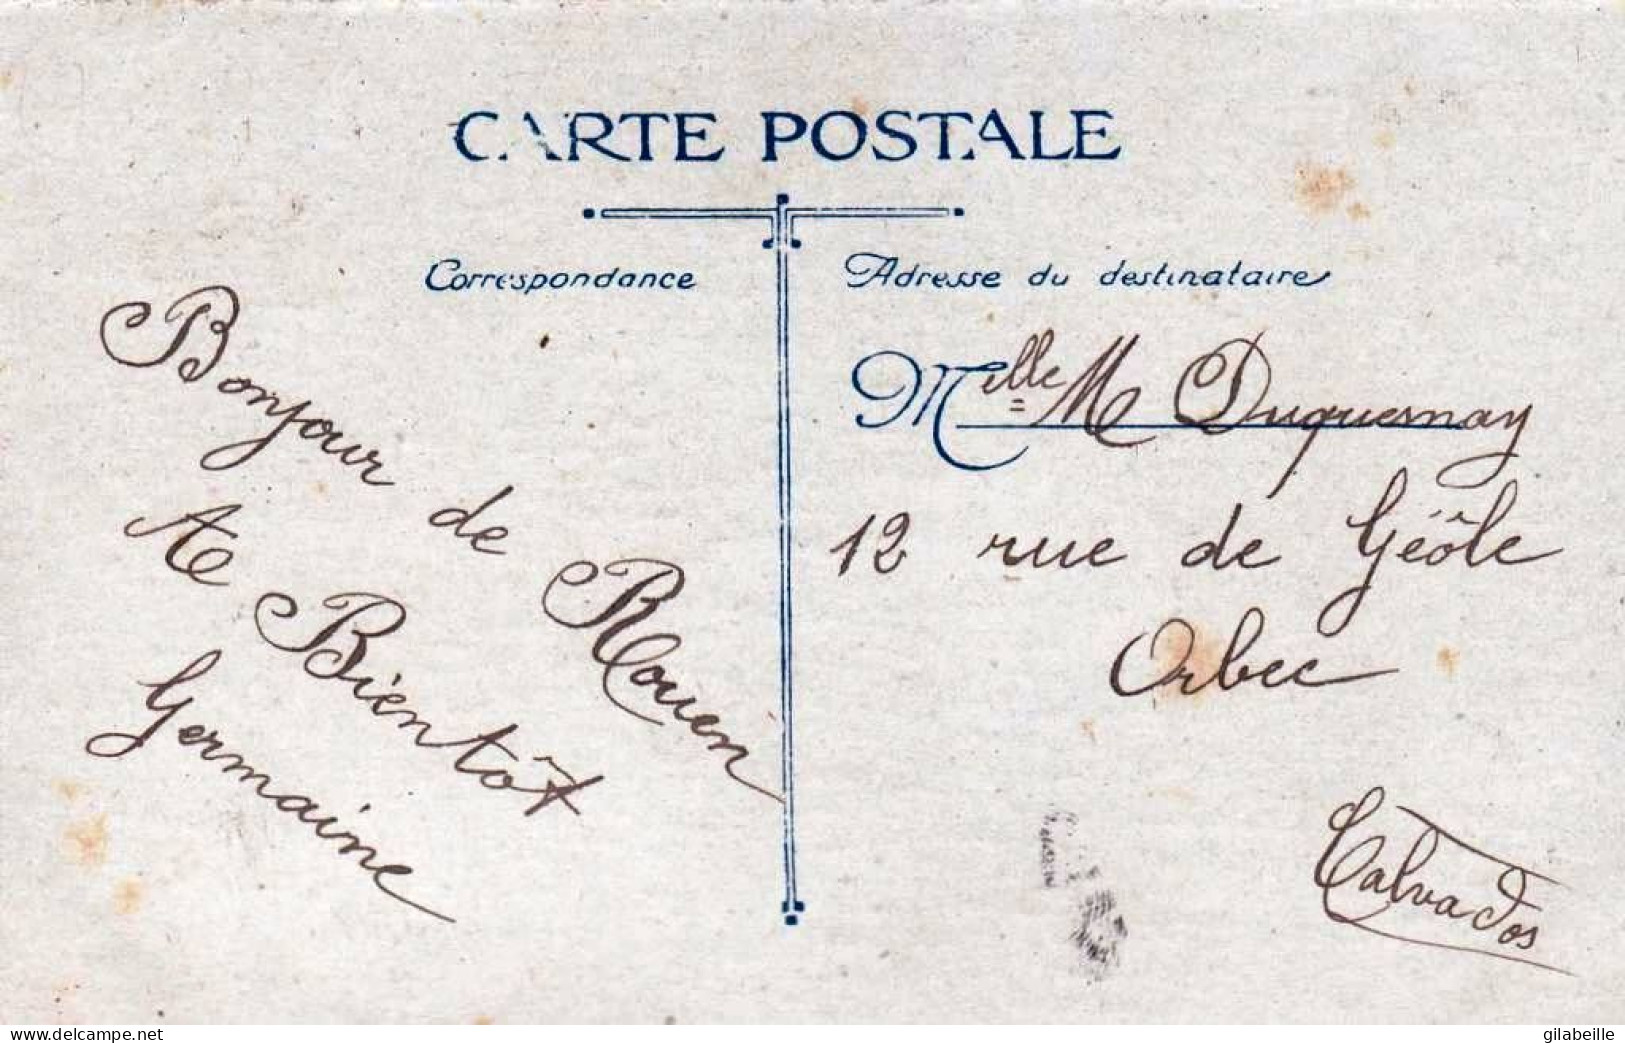 CARTE POSTALE
Correspondance
Bonjour de Rouen
A Bientôt
Germaine
Adresse du destinataire
Melle M Duquesnay
12 rue de Géôle
Orbec
Calvados
www.delcampe.net
gilabeille